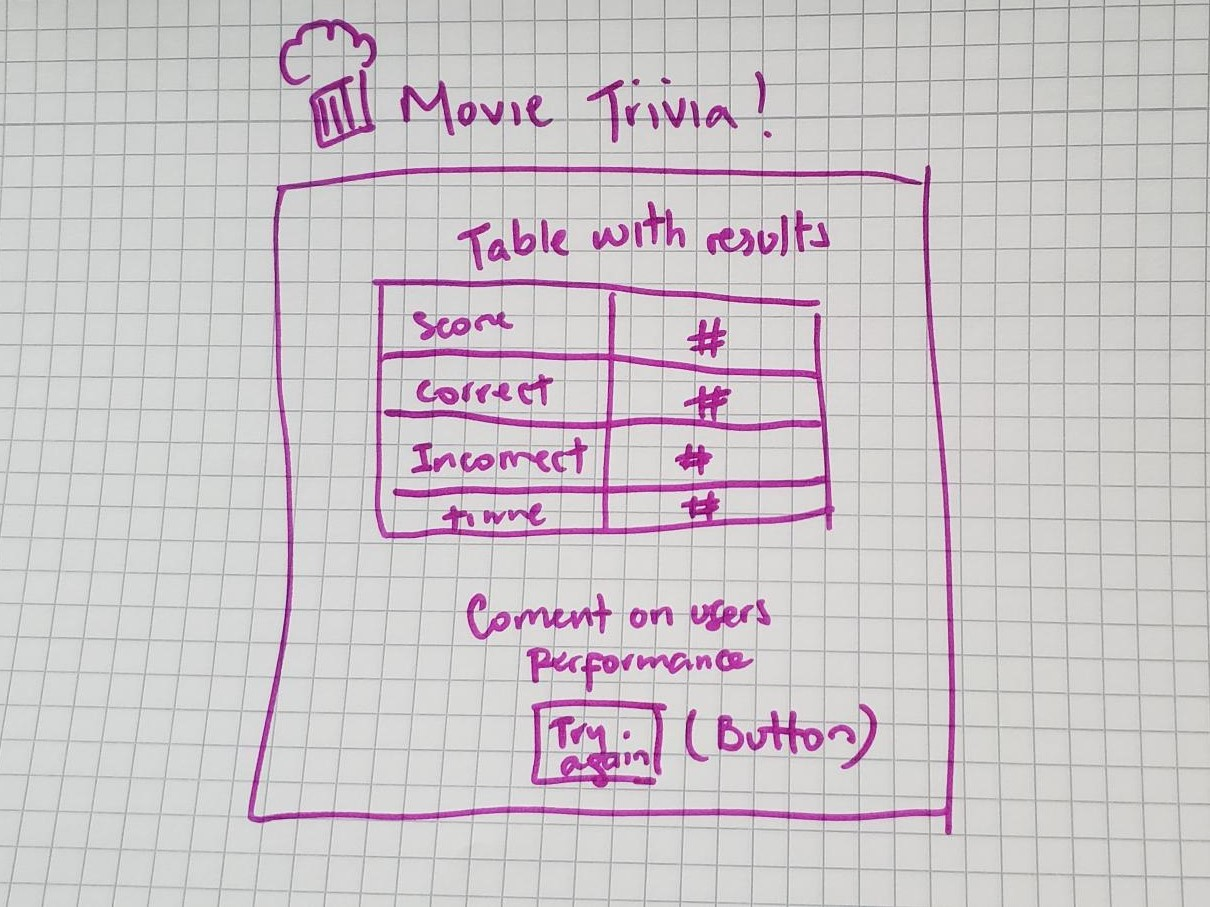 Movie Trivia!
Table with results
Score #
Correct #
Incorrect #
time #
Coment on users
Performance
Try again (Button)